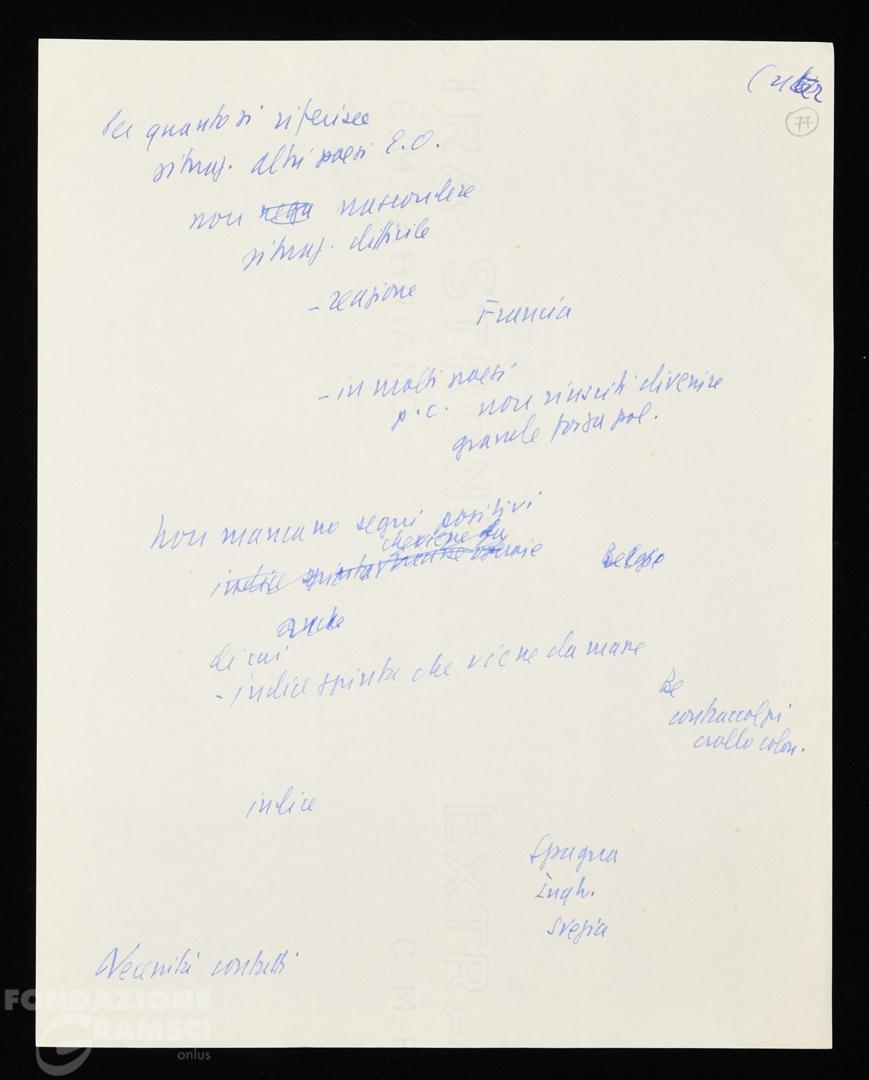 77
Per quanto si riferisce
situaz. altri paesi E.O.
non nega nascondere
situaz. difficile
- reazione
Francia
- in molti paesi
p.c. non riusciti divenire
grande forza pol.
Non mancano segni positivi
che viene da
indice spinta masse operaie
Belgio
anche
di cui
- indice spinta che viene da masse
Be
contraccolpi
crollo colon.
indice
Spagna
Ingh.
Svezia
Necessità contatti
FONDAZIONE
GRAMSCI
onlus
EXTRA STRONG
EXTRA
C.M.F